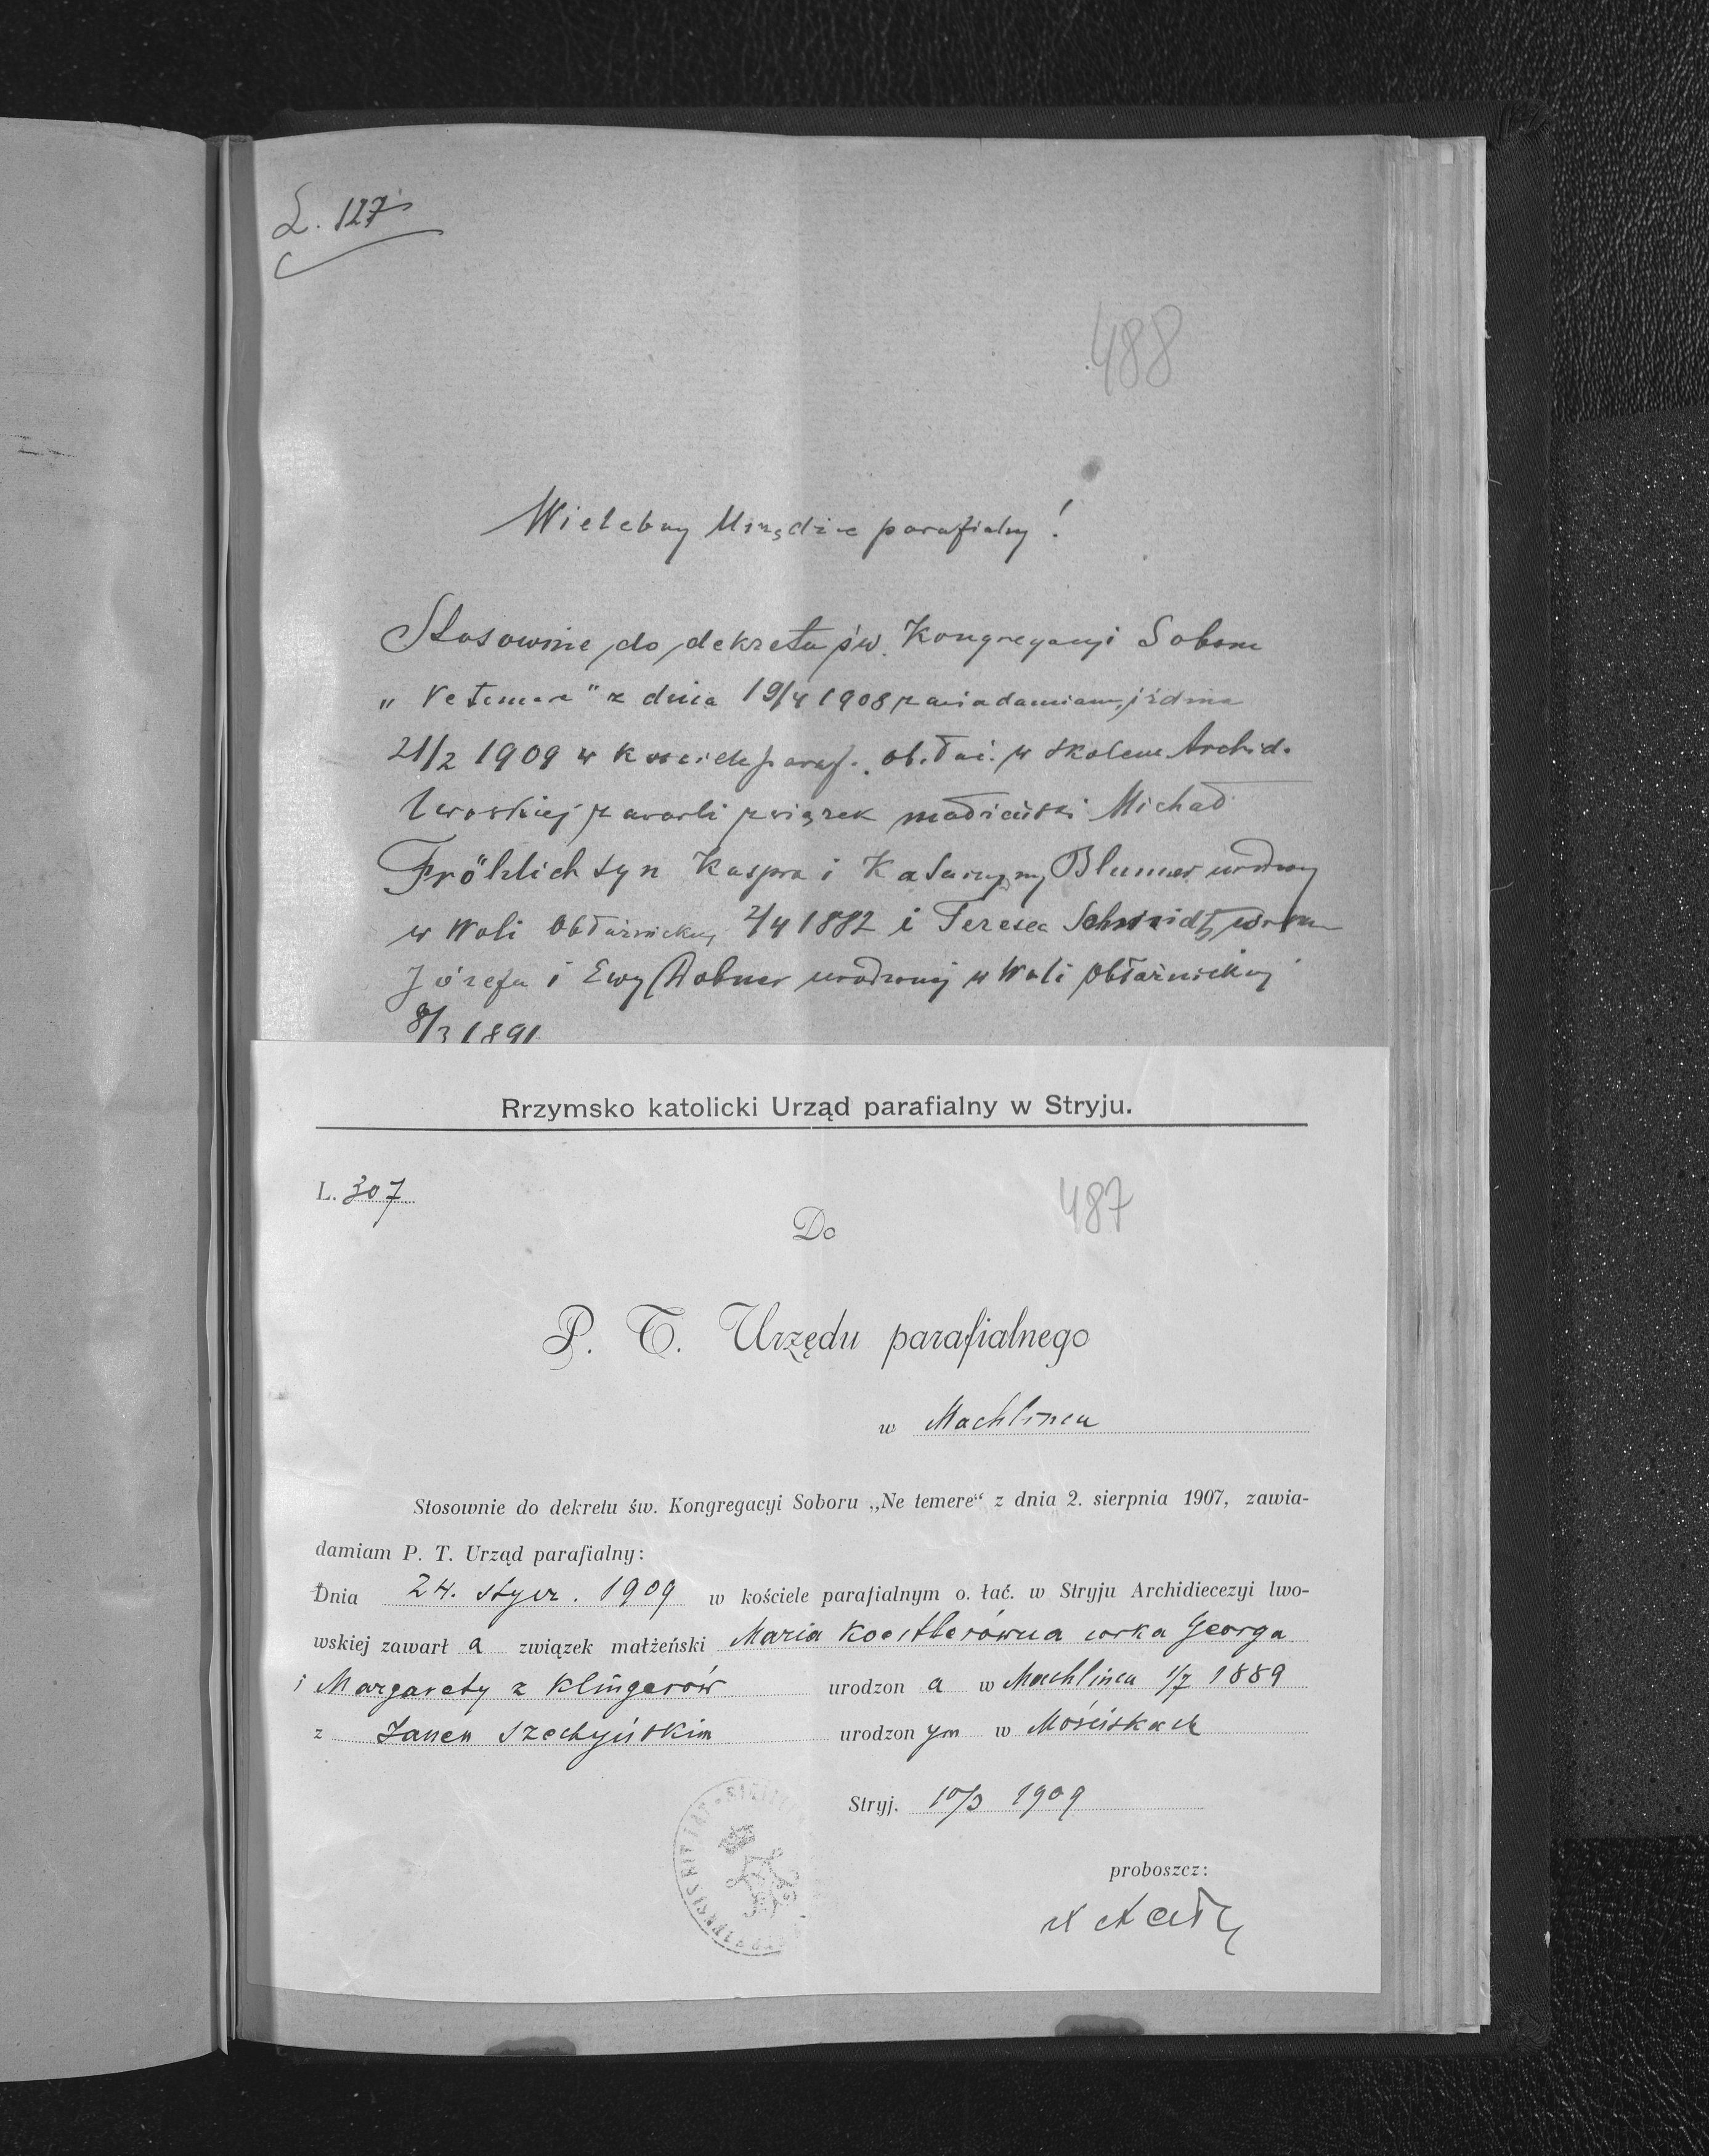 L. 127
488
Wielebny Urzędzie parafialny!
Stosownie do dekretu św. Kongregacyi Soboru
„Ne temere" z dnia 19/4 1908 zawiadamiam, iż dnia
21/2 1909 w kościele paraf. ob. łać. w Skolem Archid.
lwowskiej zawarli związek małżeński Michał
Fröhlich syn Kaspra i Katarzyny Blumer urodzony
w Woli Obłaźnickiej 2/4 1882 i Teresa Schmidt
Józefa i Ewy urodzonej w Woli Obłaźnickiej
8/3 1891
Rrzymsko katolicki Urząd parafialny w Stryju.
L. 307
487
Do
P. T. Urzędu parafialnego
w Machlincu
Stosownie do dekretu św. Kongregacyi Soboru „Ne temere“ z dnia 2. sierpnia 1907, zawia-
damiam P. T. Urząd parafialny:
Dnia 24. stycz. 1909 w kościele parafialnym o. łać. w Stryju Archidiecezyi lwo-
wskiej zawarł a związek małżeński Maria Koestlerówna corka Georga
i Margarety z Klingerów urodzon a w Machlińcu 1/7 1889
z Janem Szechyńskim urodzon ym w Mościskach
Stryj. 10/3 1909
proboszcz: